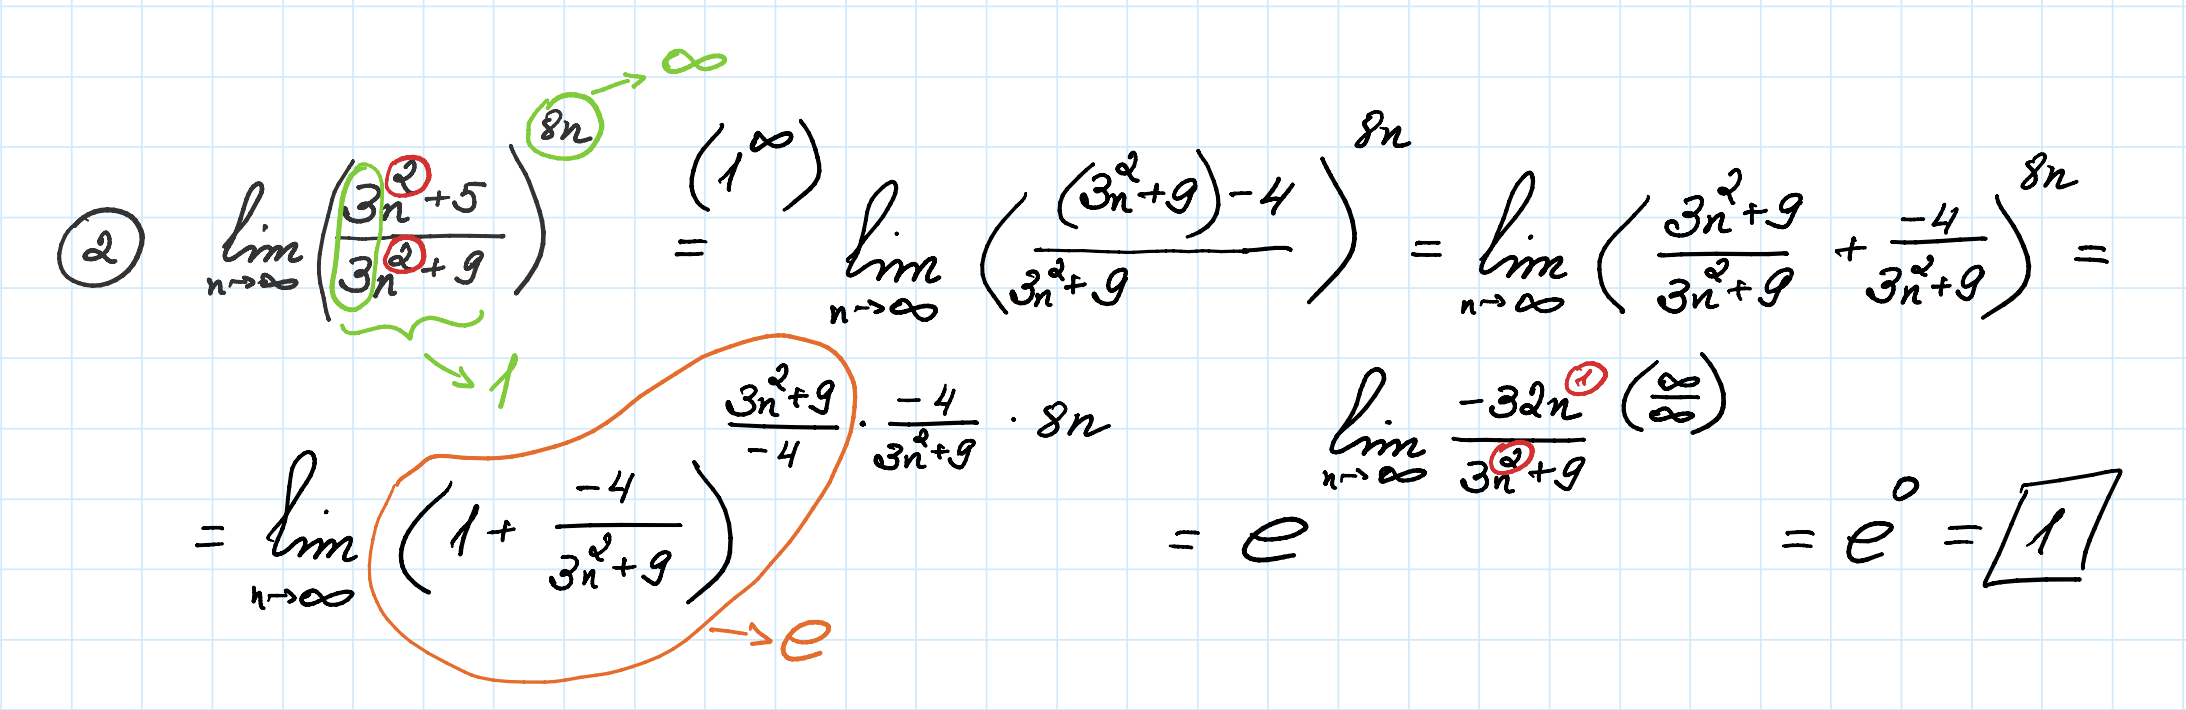 ② lim n→∞ ((3n²+5)/(3n²+9))^(8n) → ∞ = (1^∞) lim n→∞ (((3n²+9)-4)/(3n²+9))^(8n) = lim n→∞ ((3n²+9)/(3n²+9) + (-4)/(3n²+9))^(8n) =
→ 1
= lim n→∞ (1 + (-4)/(3n²+9))^((3n²+9)/(-4) · (-4)/(3n²+9) · 8n) = e^(lim n→∞ (-32n¹)/(3n²+9) (∞/∞)) = e⁰ = 1
→ e